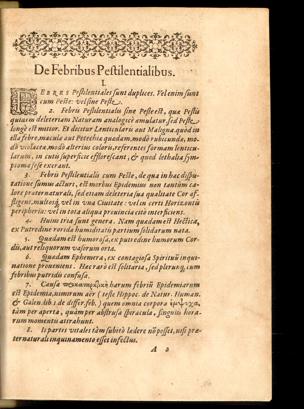 De Febribus Pestilentialibus.
I.
FEBRES Pestilentiales sunt duplices. Vel enim sunt
cum Peste: vel sine Peste.
2. Febris Pestilentialis sine Peste est, quæ Pestis
quidem deleteriam Naturam analogicè æmulatur, sed Peste
longè est mitior. Et dicitur Lenticularis aut Maligna, quòd in
ista febre, maculæ aut Petechiæ quædam, modò rubicundæ, mo-
dò violaceæ, modò alterius coloris, referentes formam lenticu-
larum, in cutis superficie efflorescant, & quod lethalia sym-
ptomata sese exerant.
3. Febris Pestilentialis cum Peste, de qua in hac dispu-
tatione sumus acturi, est morbus Epidemius non tantùm ca-
lore præternaturali, sed etiam deleteria sua qualitate Cor af-
fligens, multos, vel in una Civitate: vel in certi Horizontis
peripheria: vel in tota aliqua provincia citò interficiens.
4. Huius tria sunt genera. Nam quædam est Hectica,
ex Putredine rorida humiditatis partium solidarum nata.
5. Quædam est humorosa, ex putredine humorum Cor-
dis, aut reliquorum vasorum orta.
6. Quædam Ephemera, ex contagiosa Spirituũ inqui-
natione proveniens. Hæc rarò est solitaria, sed plerunq; cum
febribus putridis confusa.
7. Causa harum febriũ Epidemiarum
est Epidemia, nimirum aër (teste Hippoc. de Natur. Human.
& Galen. lib. 1. de differ. feb.) quem omnia corpora ἔμψυχα,
tàm per aperta, quàm per abstrusa spiracula, singulis hora-
rum momentis attrahunt.
8. Is partes vitales tàm subitò lædere nõ posset, nisi præ-
ternaturali inquinamento esset infectus.
A 2